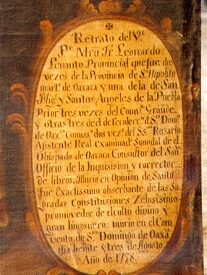 Retrato del V.
P.e Mro. Fr. Leonardo
Levanto Provincial que fue dos
vezes de la Provincia de S. Hipolito
mart. de Oaxaca y una de la de San
Mig.l y Santos Angeles de la Puebla
Prior tres vezes del Com.to Grande
y otras tres del de
de Oax.ca dos vez.s del SS.mo Rosario
Asistente Real Synodal de el
Obispado de Oaxaca Consultor del S.to
Officio de la Inquisision y corrector
de libros, murio en Opinion de Santo
fue Exactissimo observante de las Sa
gradas Constitusiones Zelosissimo
promovedor de el culto divino y
gran limosnero: murio en el Com
bento de S.to Domingo de Oaxa
cha beinte y tres de Agosto
Año de 1778